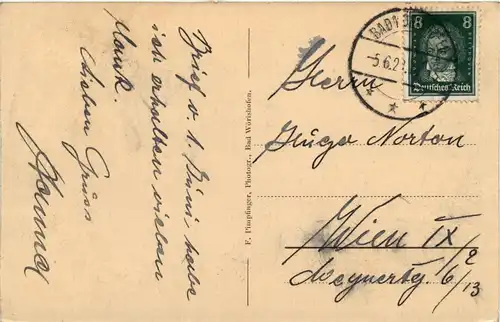 Brief v. 1. Juni, habe
ich erhalten vielen
Dank.
Lieben Gruss
F. Pimpfinger, Photogr., Bad Wörishofen.
BAD
5.6.2
8 8
Deutsches Reich
Herrn
Hugo Norton
Wien IX/2
6/13